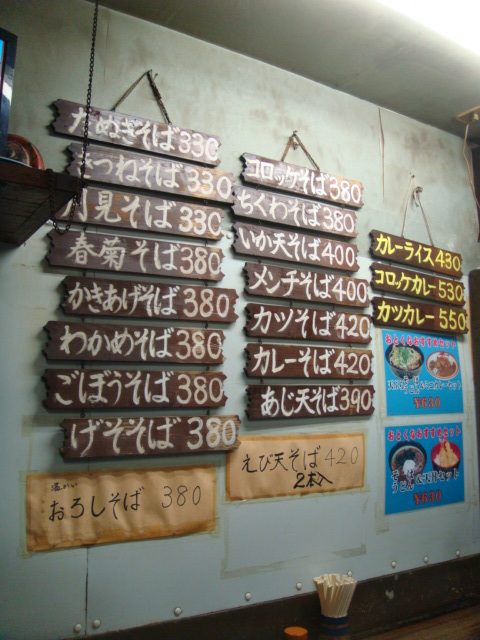 たぬきそば330
きつねそば330
月見そば330
春菊そば380
かきあげそば380
わかめそば380
ごぼうそば380
げそそば380
温かい
おろしそば 380
コロッケそば380
ちくわそば380
いか天そば400
メンチそば400
カツそば420
カレーそば420
あじ天そば390
えび天そば420
2本入
カレーライス430
コロッケカレー530
カツカレー550
おとくなおすすめセット
¥630
おとくなおすすめセット
そば
うどん&天丼セット
¥630